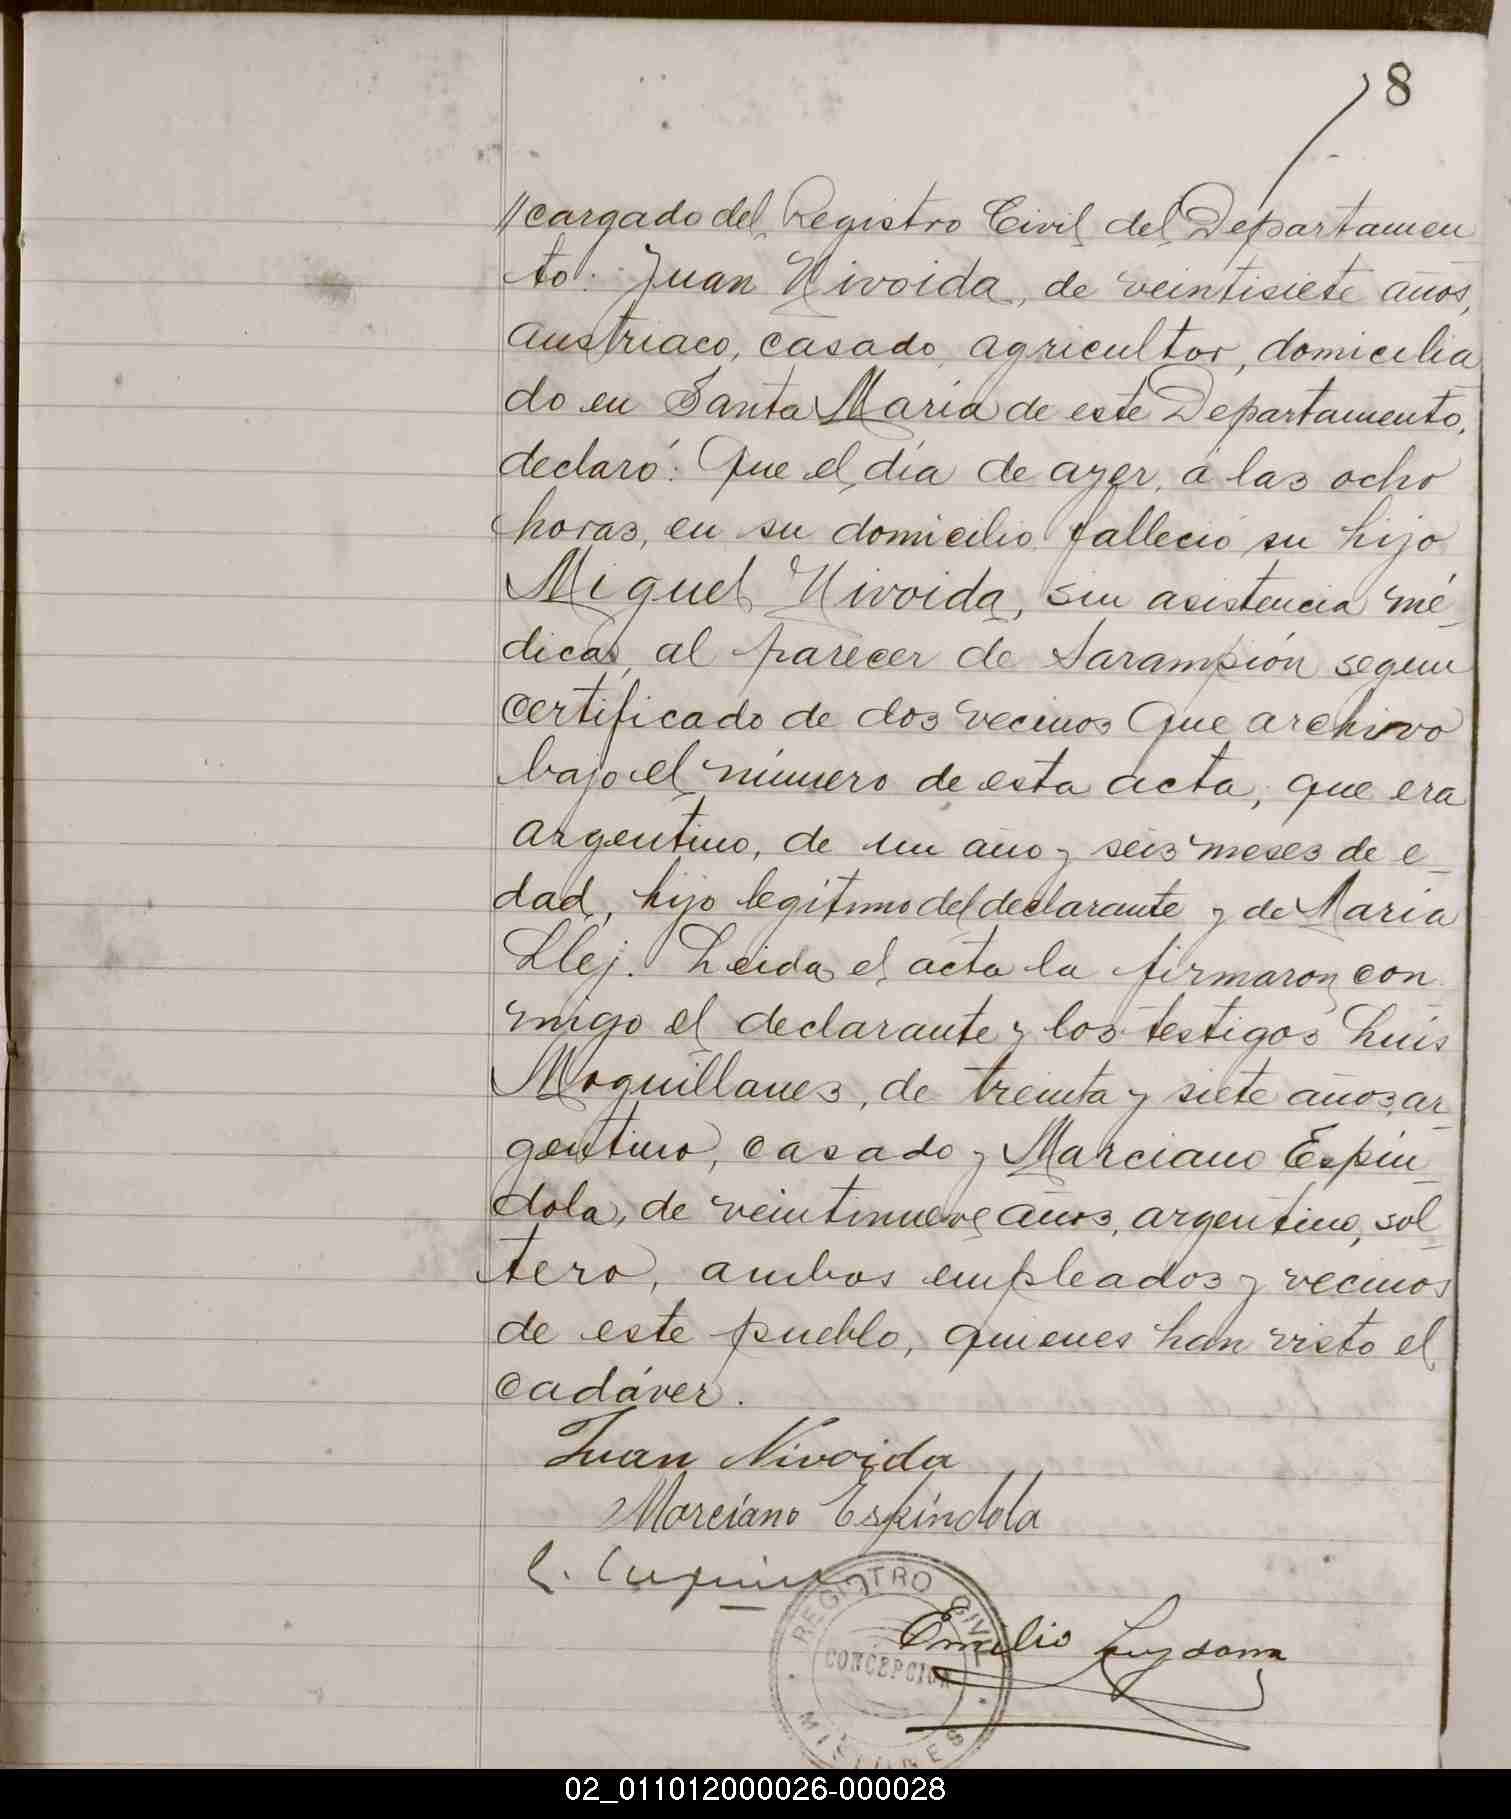 8
//cargado del Registro Civil del Departamen
to: Juan Nivoida, de veintisiete años,
austriaco, casado, agricultor, domicilia
do en Santa María de este Departamento,
declaró: Que el día de ayer, á las ocho
horas, en su domicilio falleció su hijo
Miguel Nivoida, sin asistencia mé_
dica, al parecer de Sarampión segun
certificado de dos vecinos que archivo
bajo el número de esta acta, que era
argentino, de un año y seis meses de e_
dad, hijo legítimo del declarante y de María
Llej. Leida el acta la firmaron con
migo el declarante y los testigos Luis
Moquillanes, de treinta y siete años, ar_
gentino, casado y Marciano Espín_
dola, de veintinueve años, argentino, sol_
tero, ambos empleados y vecinos
de este pueblo, quienes han visto el
cadáver.
Juan Nivoida
Marciano Espíndola
REGISTRO CIVIL
Emilio
CONCEPCION
MISIONES
02_011012000026-000028